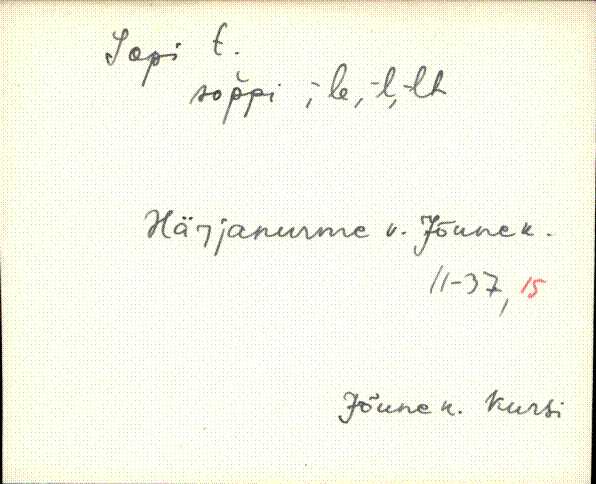 Sopi t.
sop̌pi, -le, -l, -lt
Härjanurme v. Jõune k.
11-37, 15
Jõune k. Kursi